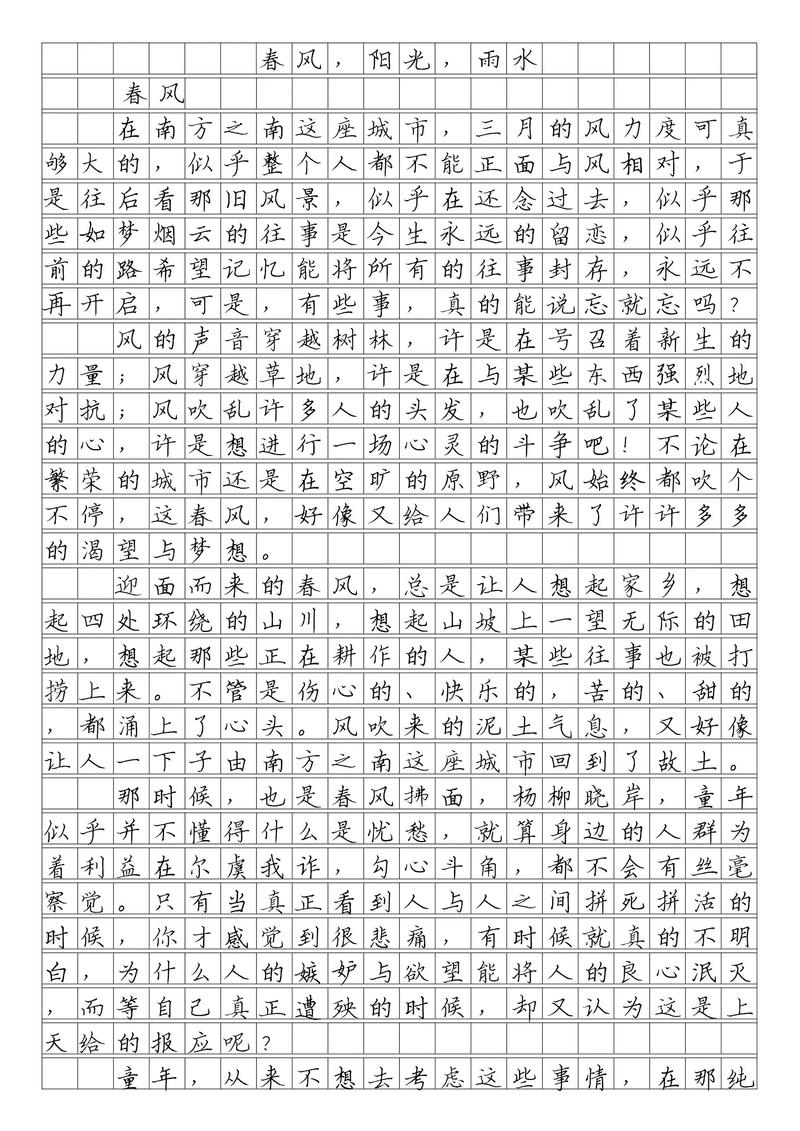 春风，阳光，雨水
春风
在南方之南这座城市，三月的风力度可真
够大的，似乎整个人都不能正面与风相对，于
是往后看那旧风景，似乎在还念过去，似乎那
些如梦烟云的往事是今生永远的留恋，似乎往
前的路希望记忆能将所有的往事封存，永远不
再开启，可是，有些事，真的能说忘就忘吗？
风的声音穿越树林，许是在号召着新生的
力量；风穿越草地，许是在与某些东西强烈地
对抗；风吹乱许多人的头发，也吹乱了某些人
的心，许是想进行一场心灵的斗争吧！不论在
繁荣的城市还是在空旷的原野，风始终都吹个
不停，这春风，好像又给人们带来了许许多多
的渴望与梦想。
迎面而来的春风，总是让人想起家乡，想
起四处环绕的山川，想起山坡上一望无际的田
地，想起那些正在耕作的人，某些往事也被打
捞上来。不管是伤心的、快乐的，苦的、甜的
，都涌上了心头。风吹来的泥土气息，又好像
让人一下子由南方之南这座城市回到了故土。
那时候，也是春风拂面，杨柳晓岸，童年
似乎并不懂得什么是忧愁，就算身边的人群为
着利益在尔虞我诈，勾心斗角，都不会有丝毫
察觉。只有当真正看到人与人之间拼死拼活的
时候，你才感觉到很悲痛，有时候就真的不明
白，为什么人的嫉妒与欲望能将人的良心泯灭
，而等自己真正遭殃的时候，却又认为这是上
天给的报应呢？
童年，从来不想去考虑这些事情，在那纯